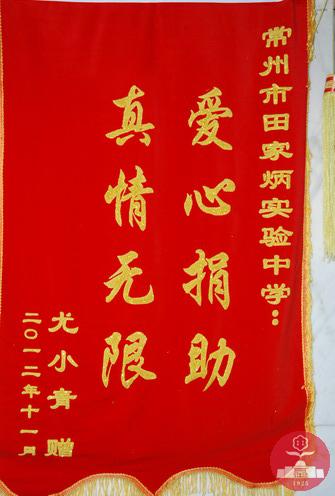 常州市田家炳实验中学：
爱心捐助
真情无限
尤小青 赠
二〇一二年十一月
1925